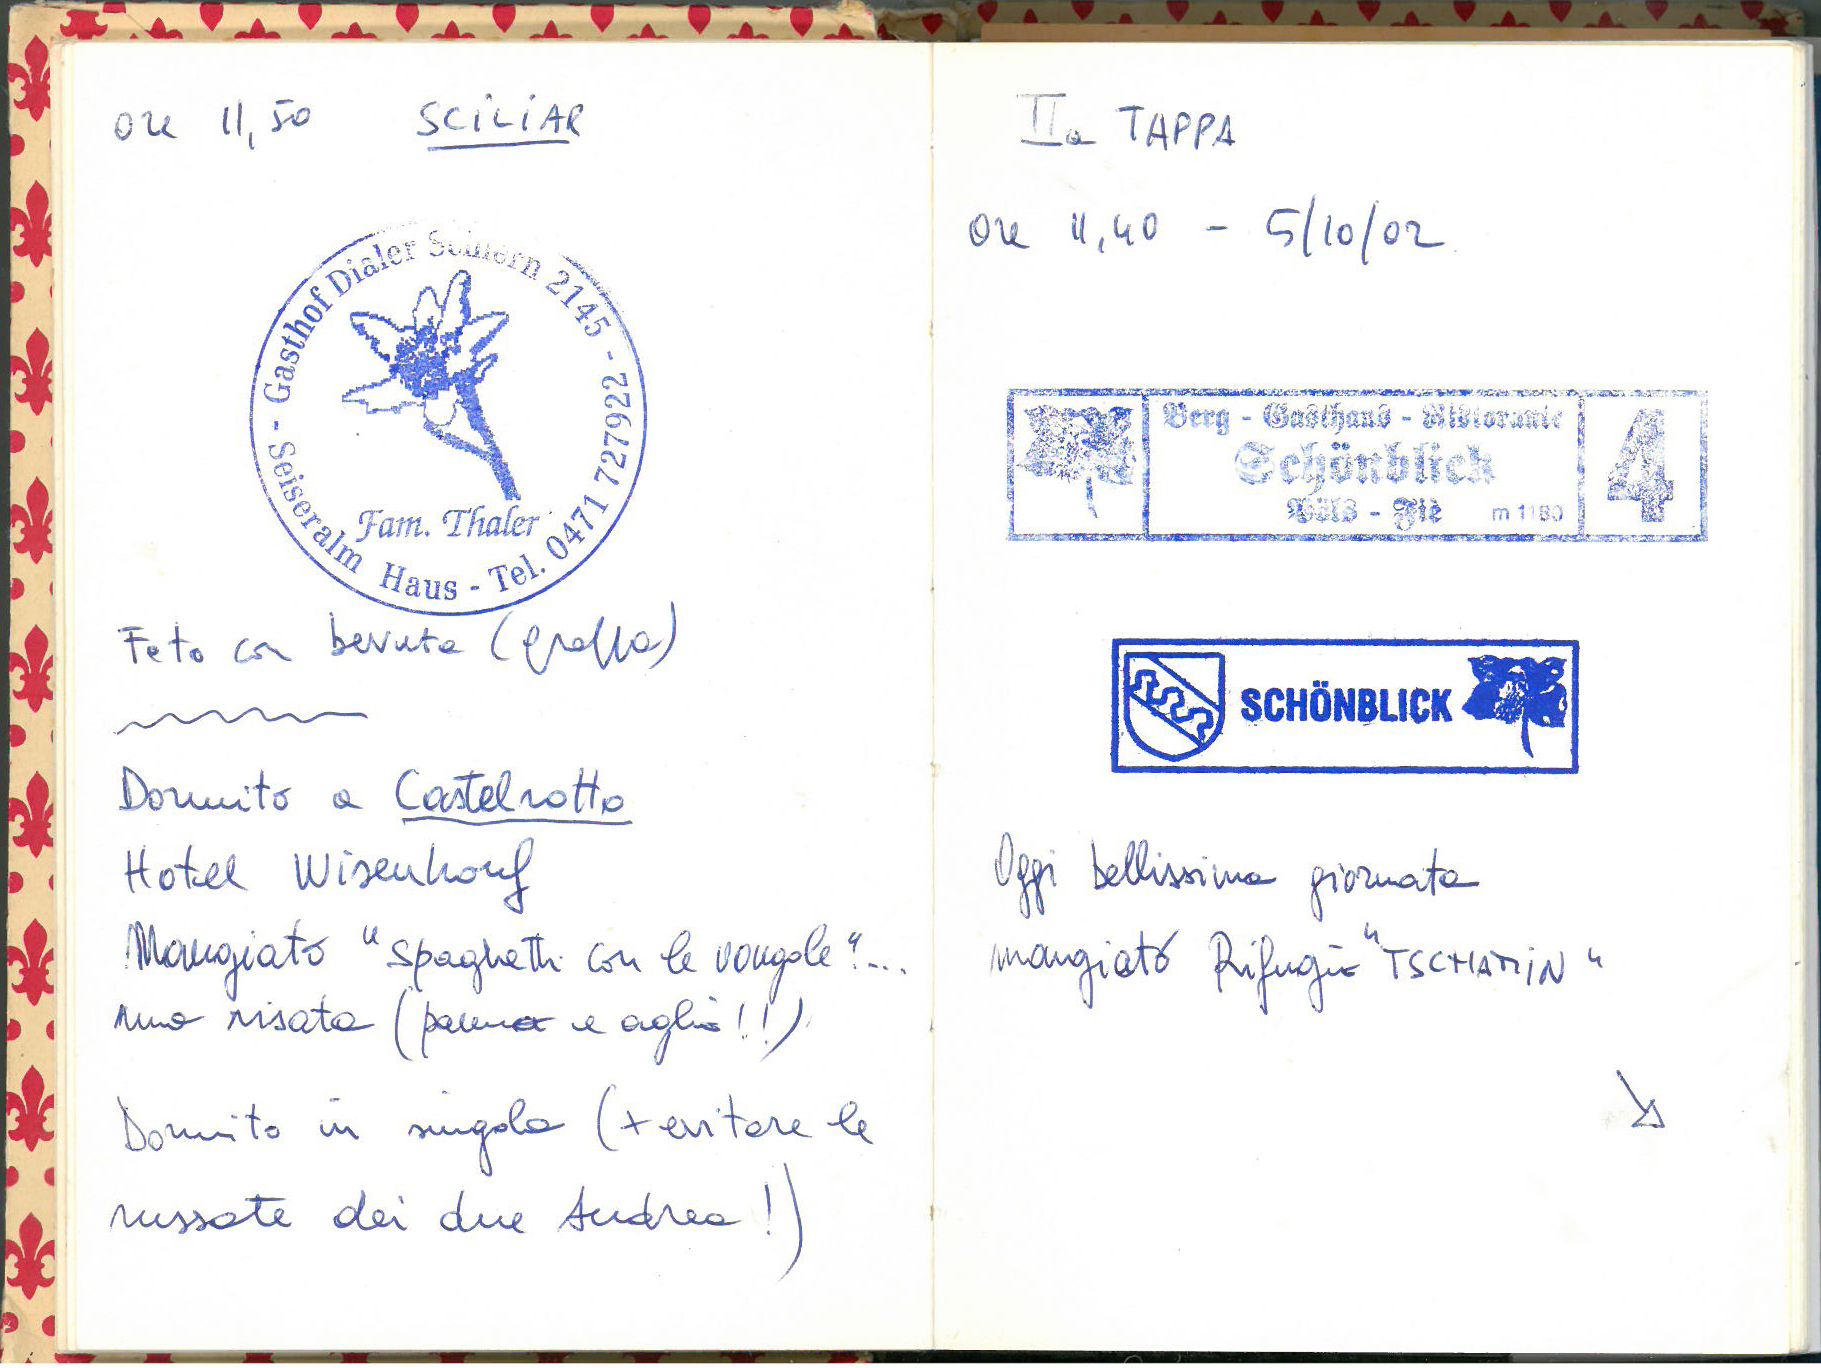 ore 11,50 SCILIAR
- Gasthof Dialer Schlern 2145 - Tel. 0471 727922
Seiseralm Haus -
Fam. Thaler
Feto con bevuta (grappa)
Dormito a Castelrotto
Hotel Wisenhouf
Mangiato "spaghetti con le vongole"...
una risata (panna e aglio!!)
Dormito in singola (x evitare le
russate dei due Andrea!)
IIa TAPPA
ore 11,40 - 5/10/02
Berg - Gasthaus - Ristorante
Schönblick
Völs - Fiè m 1180
4
SCHÖNBLICK
Oggi bellissima giornata
mangiato Rifugio "TSCHAMIN"